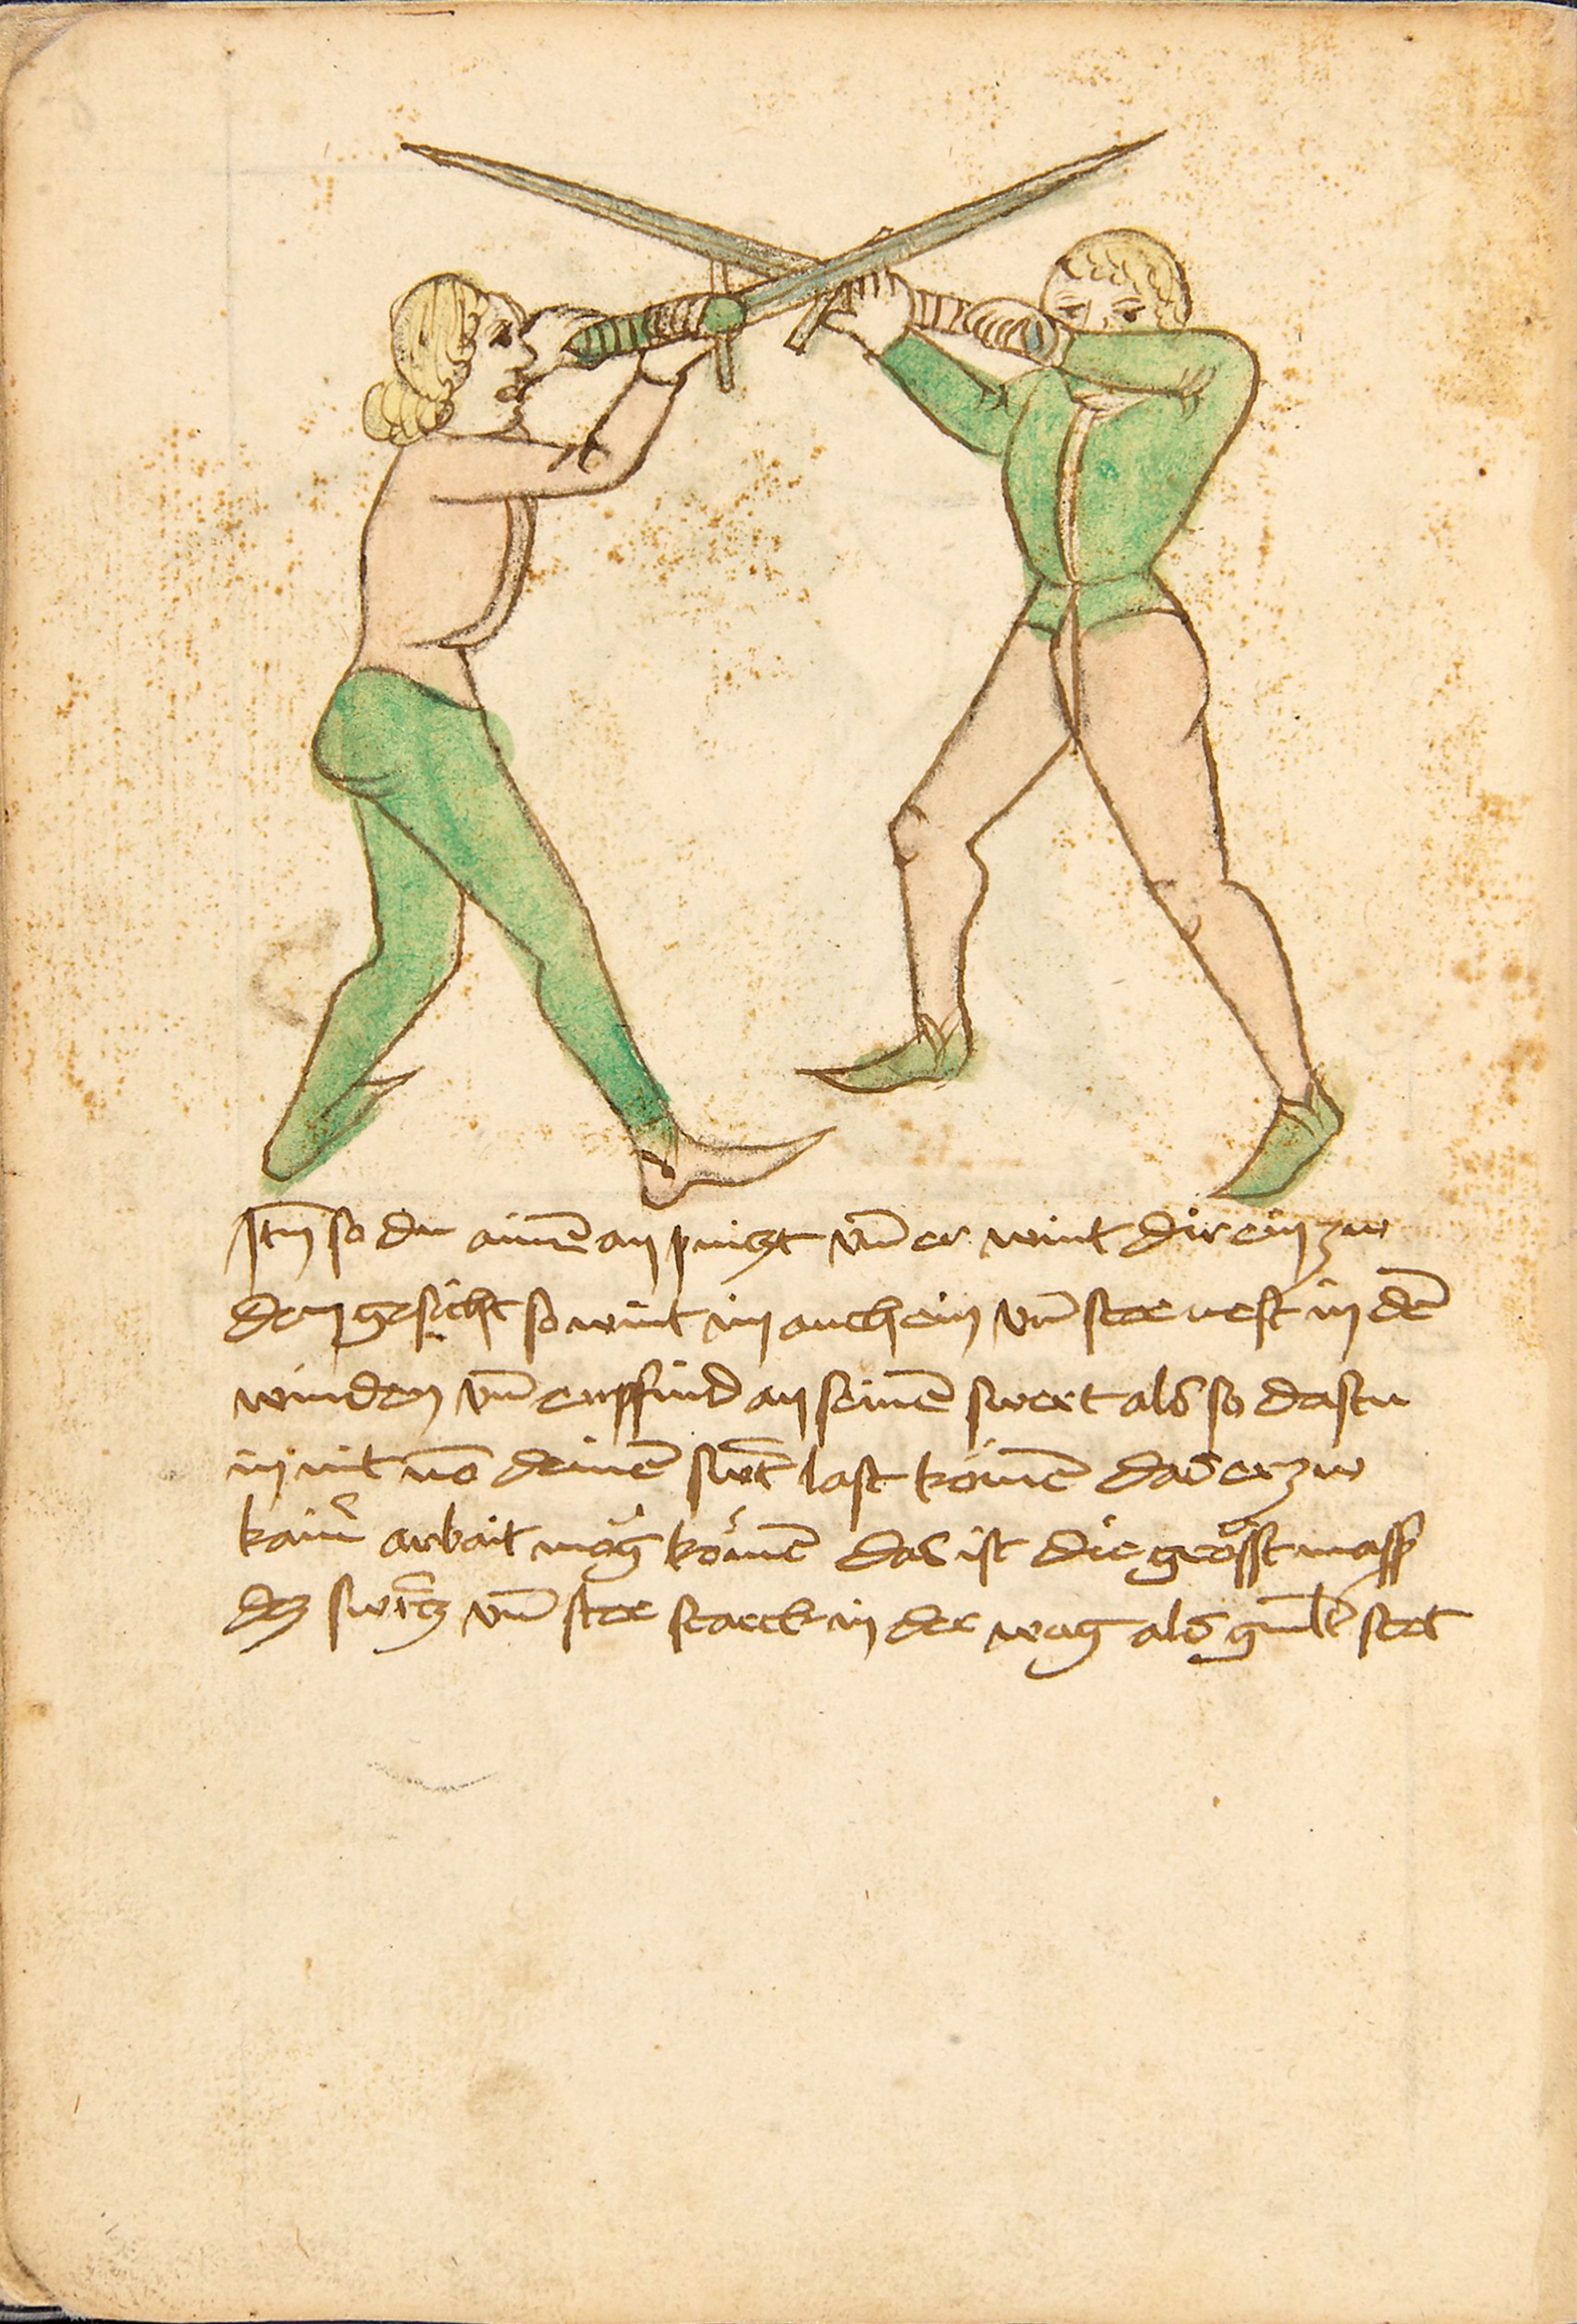 Itm̄ so du ainē an pintzt vn̄ er wint dir ein zw
dem gesicht so wint im auch ein vn̄ stee vest in dē
winden vn̄ enpfind an seinē swert also so dastu
in nit vō deinē swt̄ last komē das er zw
kain̄ arbait mög kömē das ist die gröst mass
dez swrtz̄ vn̄ stee starck in der wag als gmlt̄ stet